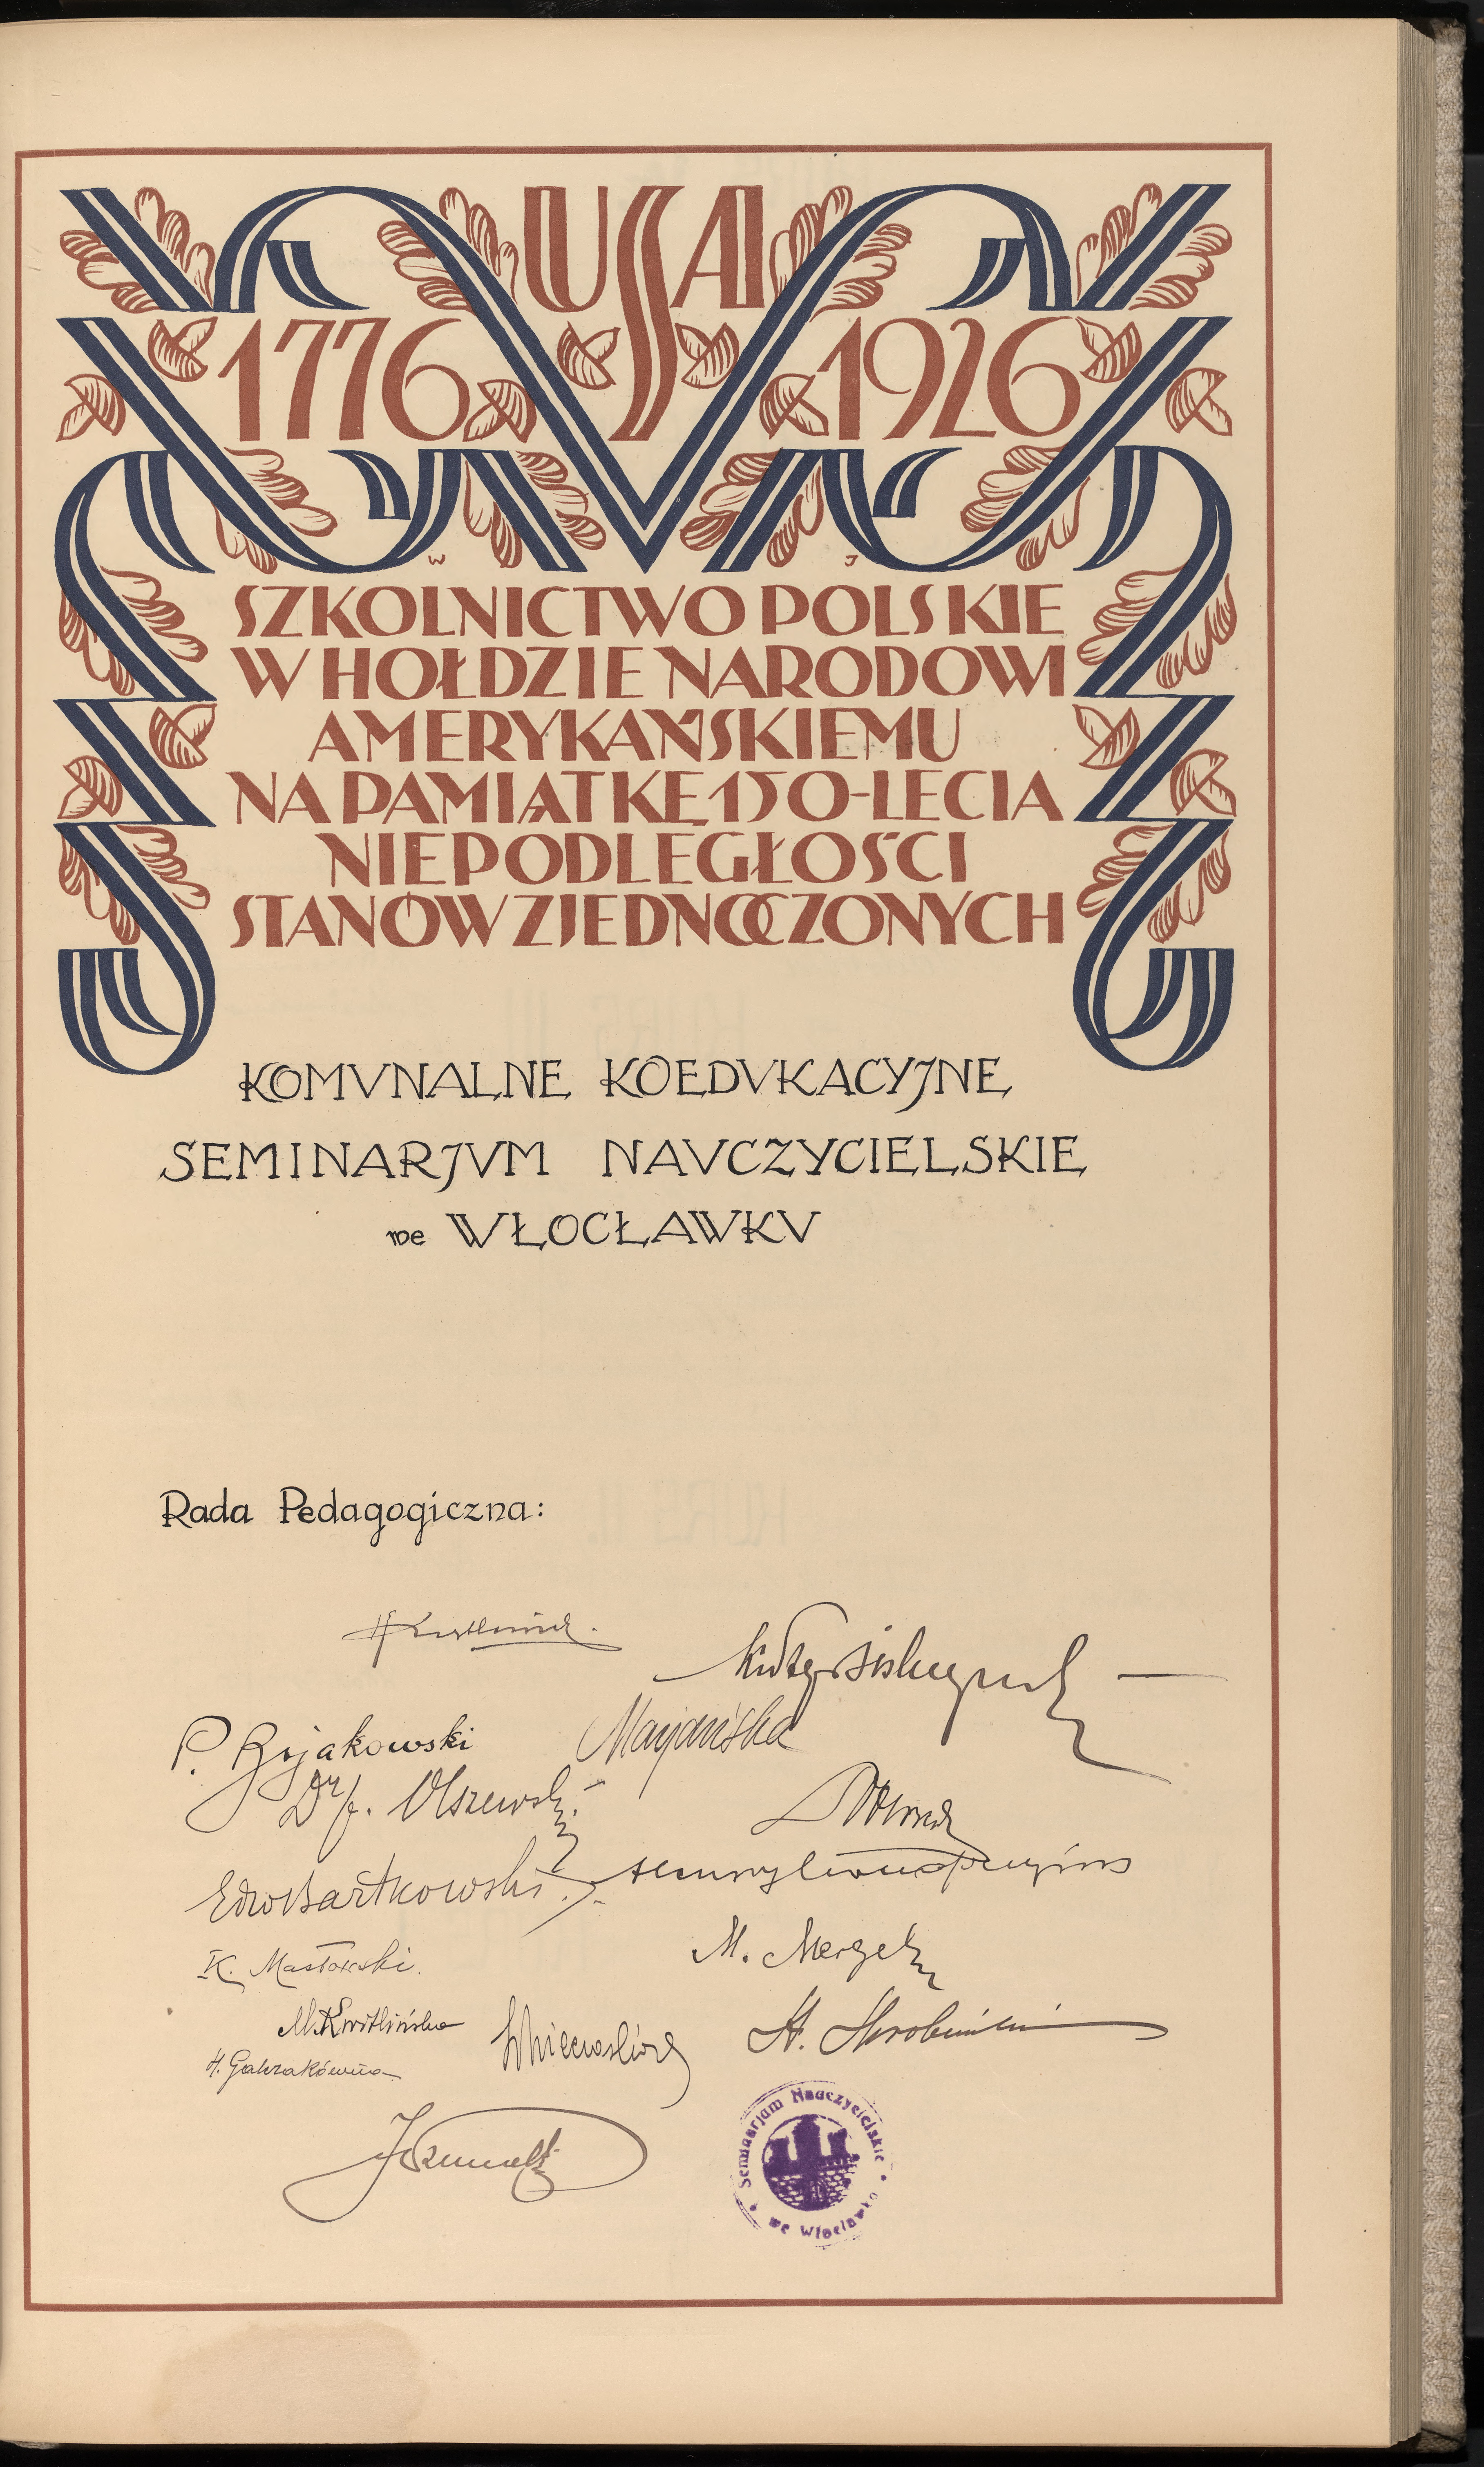 USA
1776 1926
W J
SZKOLNICTWO POLSKIE
W HOŁDZIE NARODOWI
AMERYKAŃSKIEMU
NA PAMIĄTKĘ 150-LECIA
NIEPODLEGŁOŚCI
STANÓW ZJEDNOCZONYCH
KOMVNALNE KOEDVKACYJNE
SEMINARJVM NAVCZYCIELSKIE
we WŁOCŁAWKV
Rada Pedagogiczna:
P. Bojakowski
Dr J. Olszewski
Edw Bartkowski
K. Masłowski.
M. Mergel
M. Kwitlińska
H. Galczakówna
Seminarjum Nauczycielskie
we Włocławku